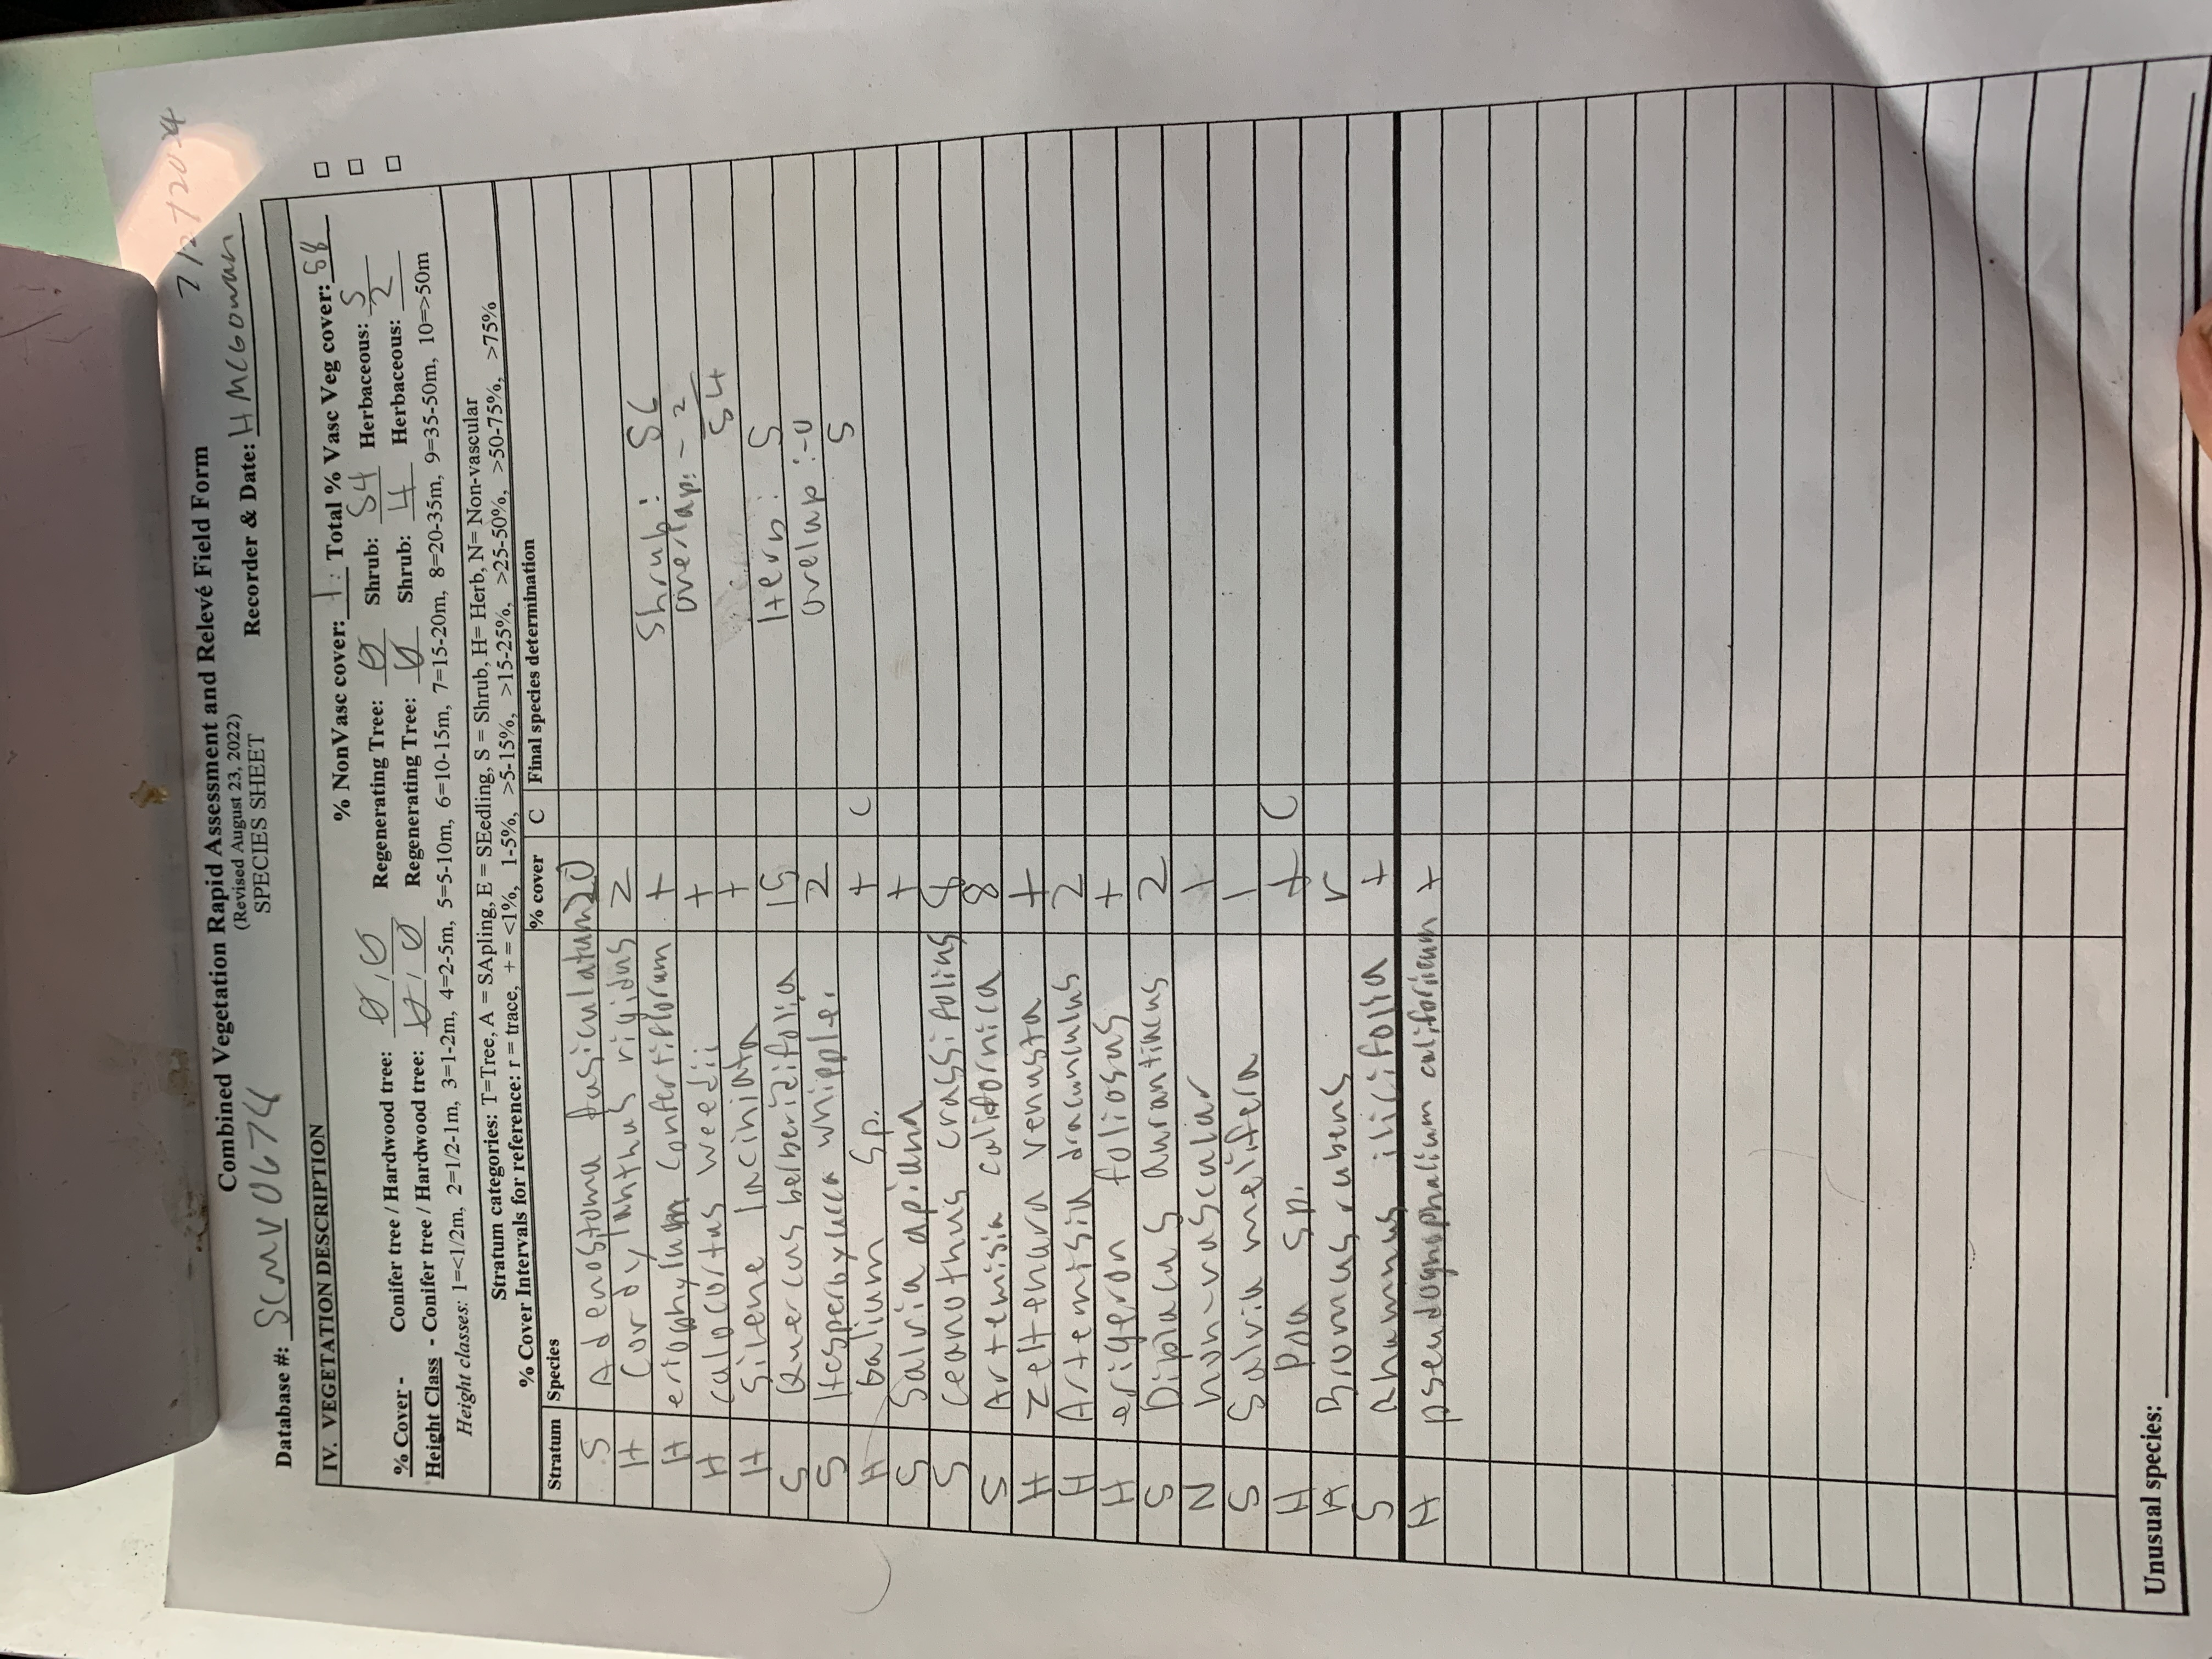 7/27/2024
Combined Vegetation Rapid Assessment and Relevé Field Form
(Revised August 23, 2022)
SPECIES SHEET
Database #: SCMV0674 Recorder & Date: H McGowan
IV. VEGETATION DESCRIPTION
% NonVasc cover: Total % Vasc Veg cover: 58
% Cover - Conifer tree / Hardwood tree: 0 / 0 Regenerating Tree: 0 Shrub: 54 Herbaceous: 5
Height Class - Conifer tree / Hardwood tree: 0 / 0 Regenerating Tree: 0 Shrub: 4 Herbaceous: 2
Height classes: 1=<1/2m, 2=1/2-1m, 3=1-2m, 4=2-5m, 5=5-10m, 6=10-15m, 7=15-20m, 8=20-35m, 9=35-50m, 10=>50m
Stratum categories: T=Tree, A = SApling, E = SEedling, S = Shrub, H= Herb, N= Non-vascular
% Cover Intervals for reference: r = trace, + = <1%, 1-5%, >5-15%, >15-25%, >25-50%, >50-75%, >75%
Stratum Species % cover C Final species determination
S Adenostoma fasiculatum 20
H Cordylanthus rigidus 2
H eriophyllum confertiflorum + Shrub: 56
H calocortus weedii + overlap: - 2
H Silene laciniata + 54
S Quercus berberidifolia 15 Herb: 5
S Hesperoyucca whipplei 2 overlap: -0
H Galium sp. + C 5
S Salvia apiana +
S ceanothus crassifolius
S Artemisia californica 8
H Zeltnuara venusta +
H Artemisia dracunculus 2
H erigeron foliosus +
S Diplacus aurantiacus 2
N non-vascular
S Salvia melifera 1
H Poa sp. + C
H Bromus rubens r
S rhamnus ilicifolia +
H pseudognaphalium californicum +
Unusual species: